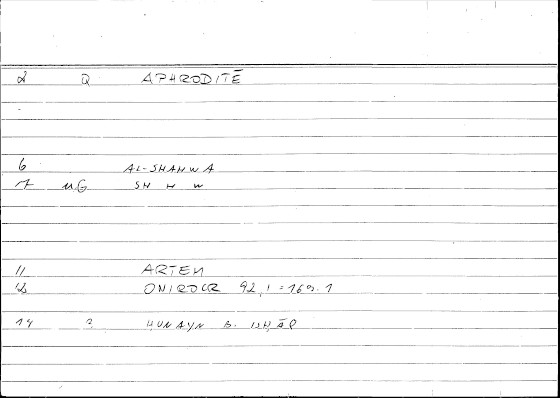 2 Q APHRODITĒ
6 AL-SHAHWA
7 uG SH H W
11 ARTEM
12 ONIROCR 92,1 = 169.1
14 2 ḤUNAYN B. ISḤĀQ